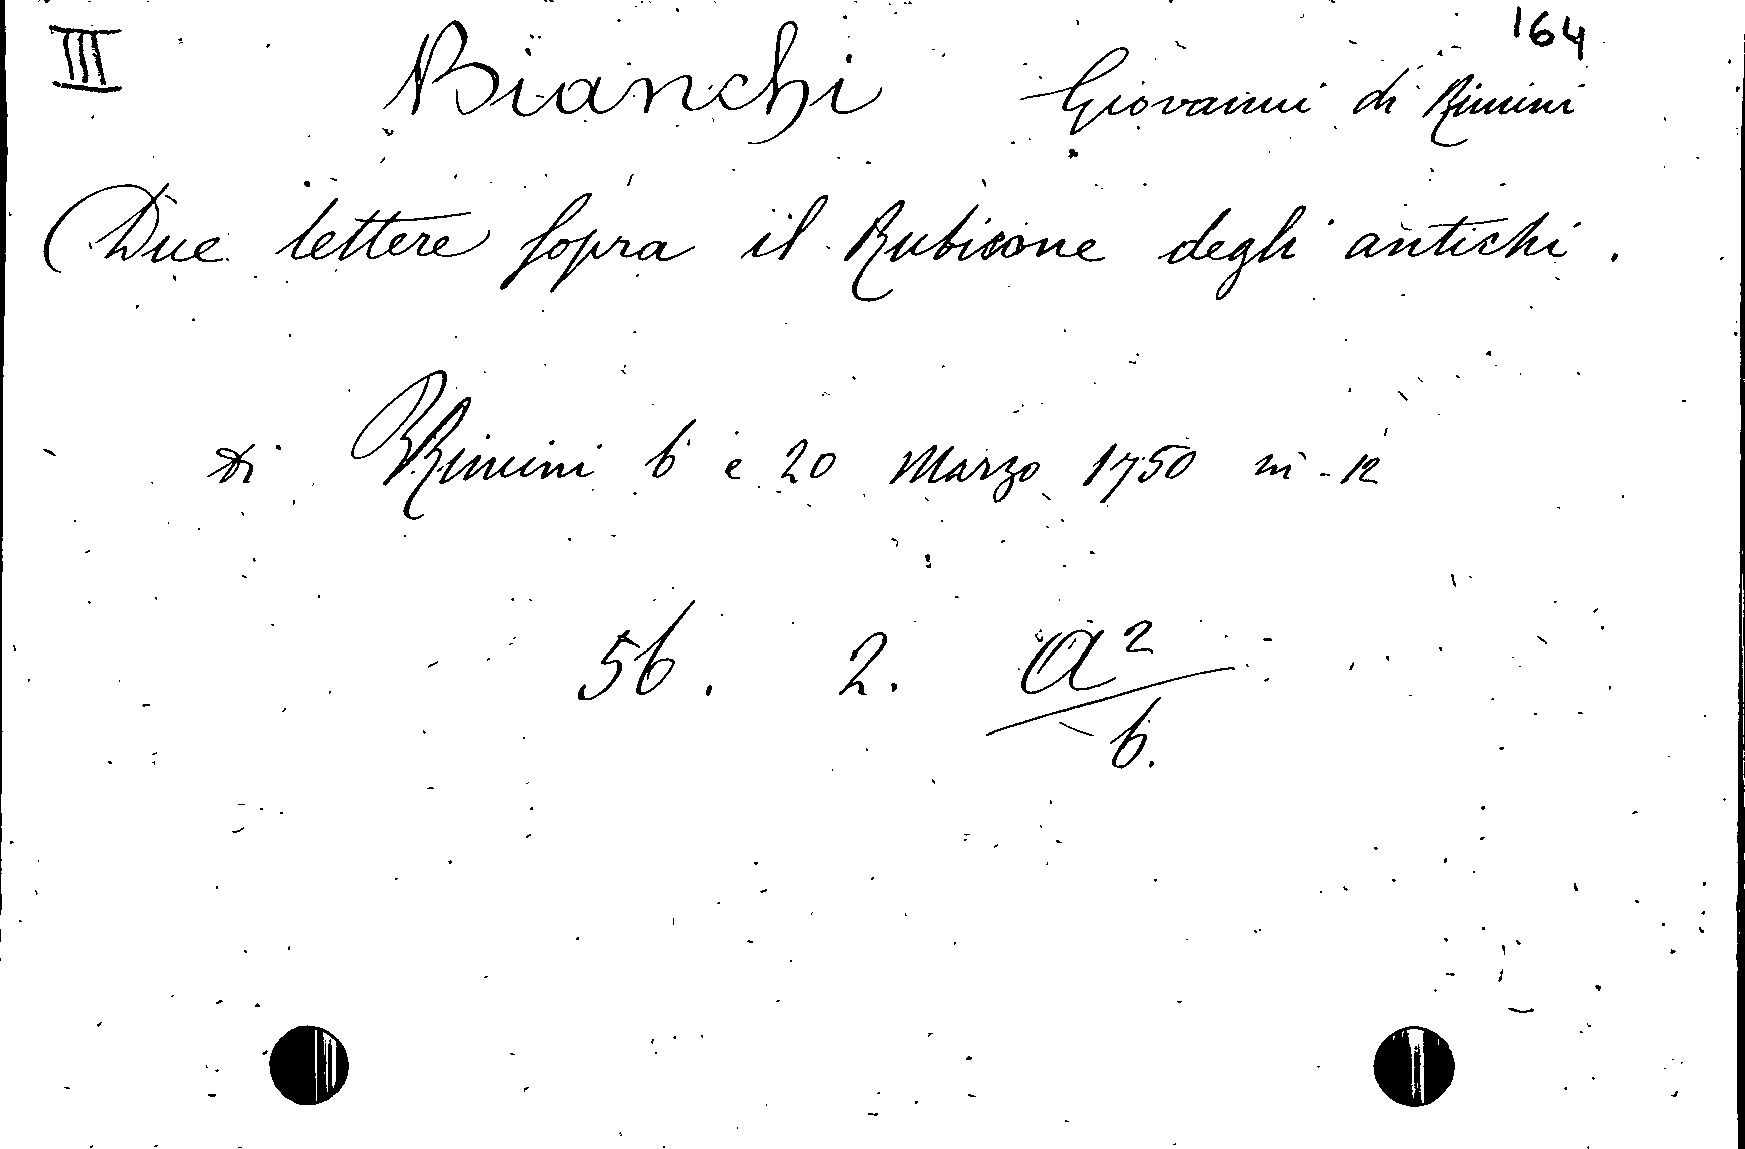 III 164
Bianchi Giovanni di Rimini
Due lettere sopra il Rubicone degli antichi.
di Rimini 6 e 20 Marzo 1750 in-12
56. 2. a²/6.